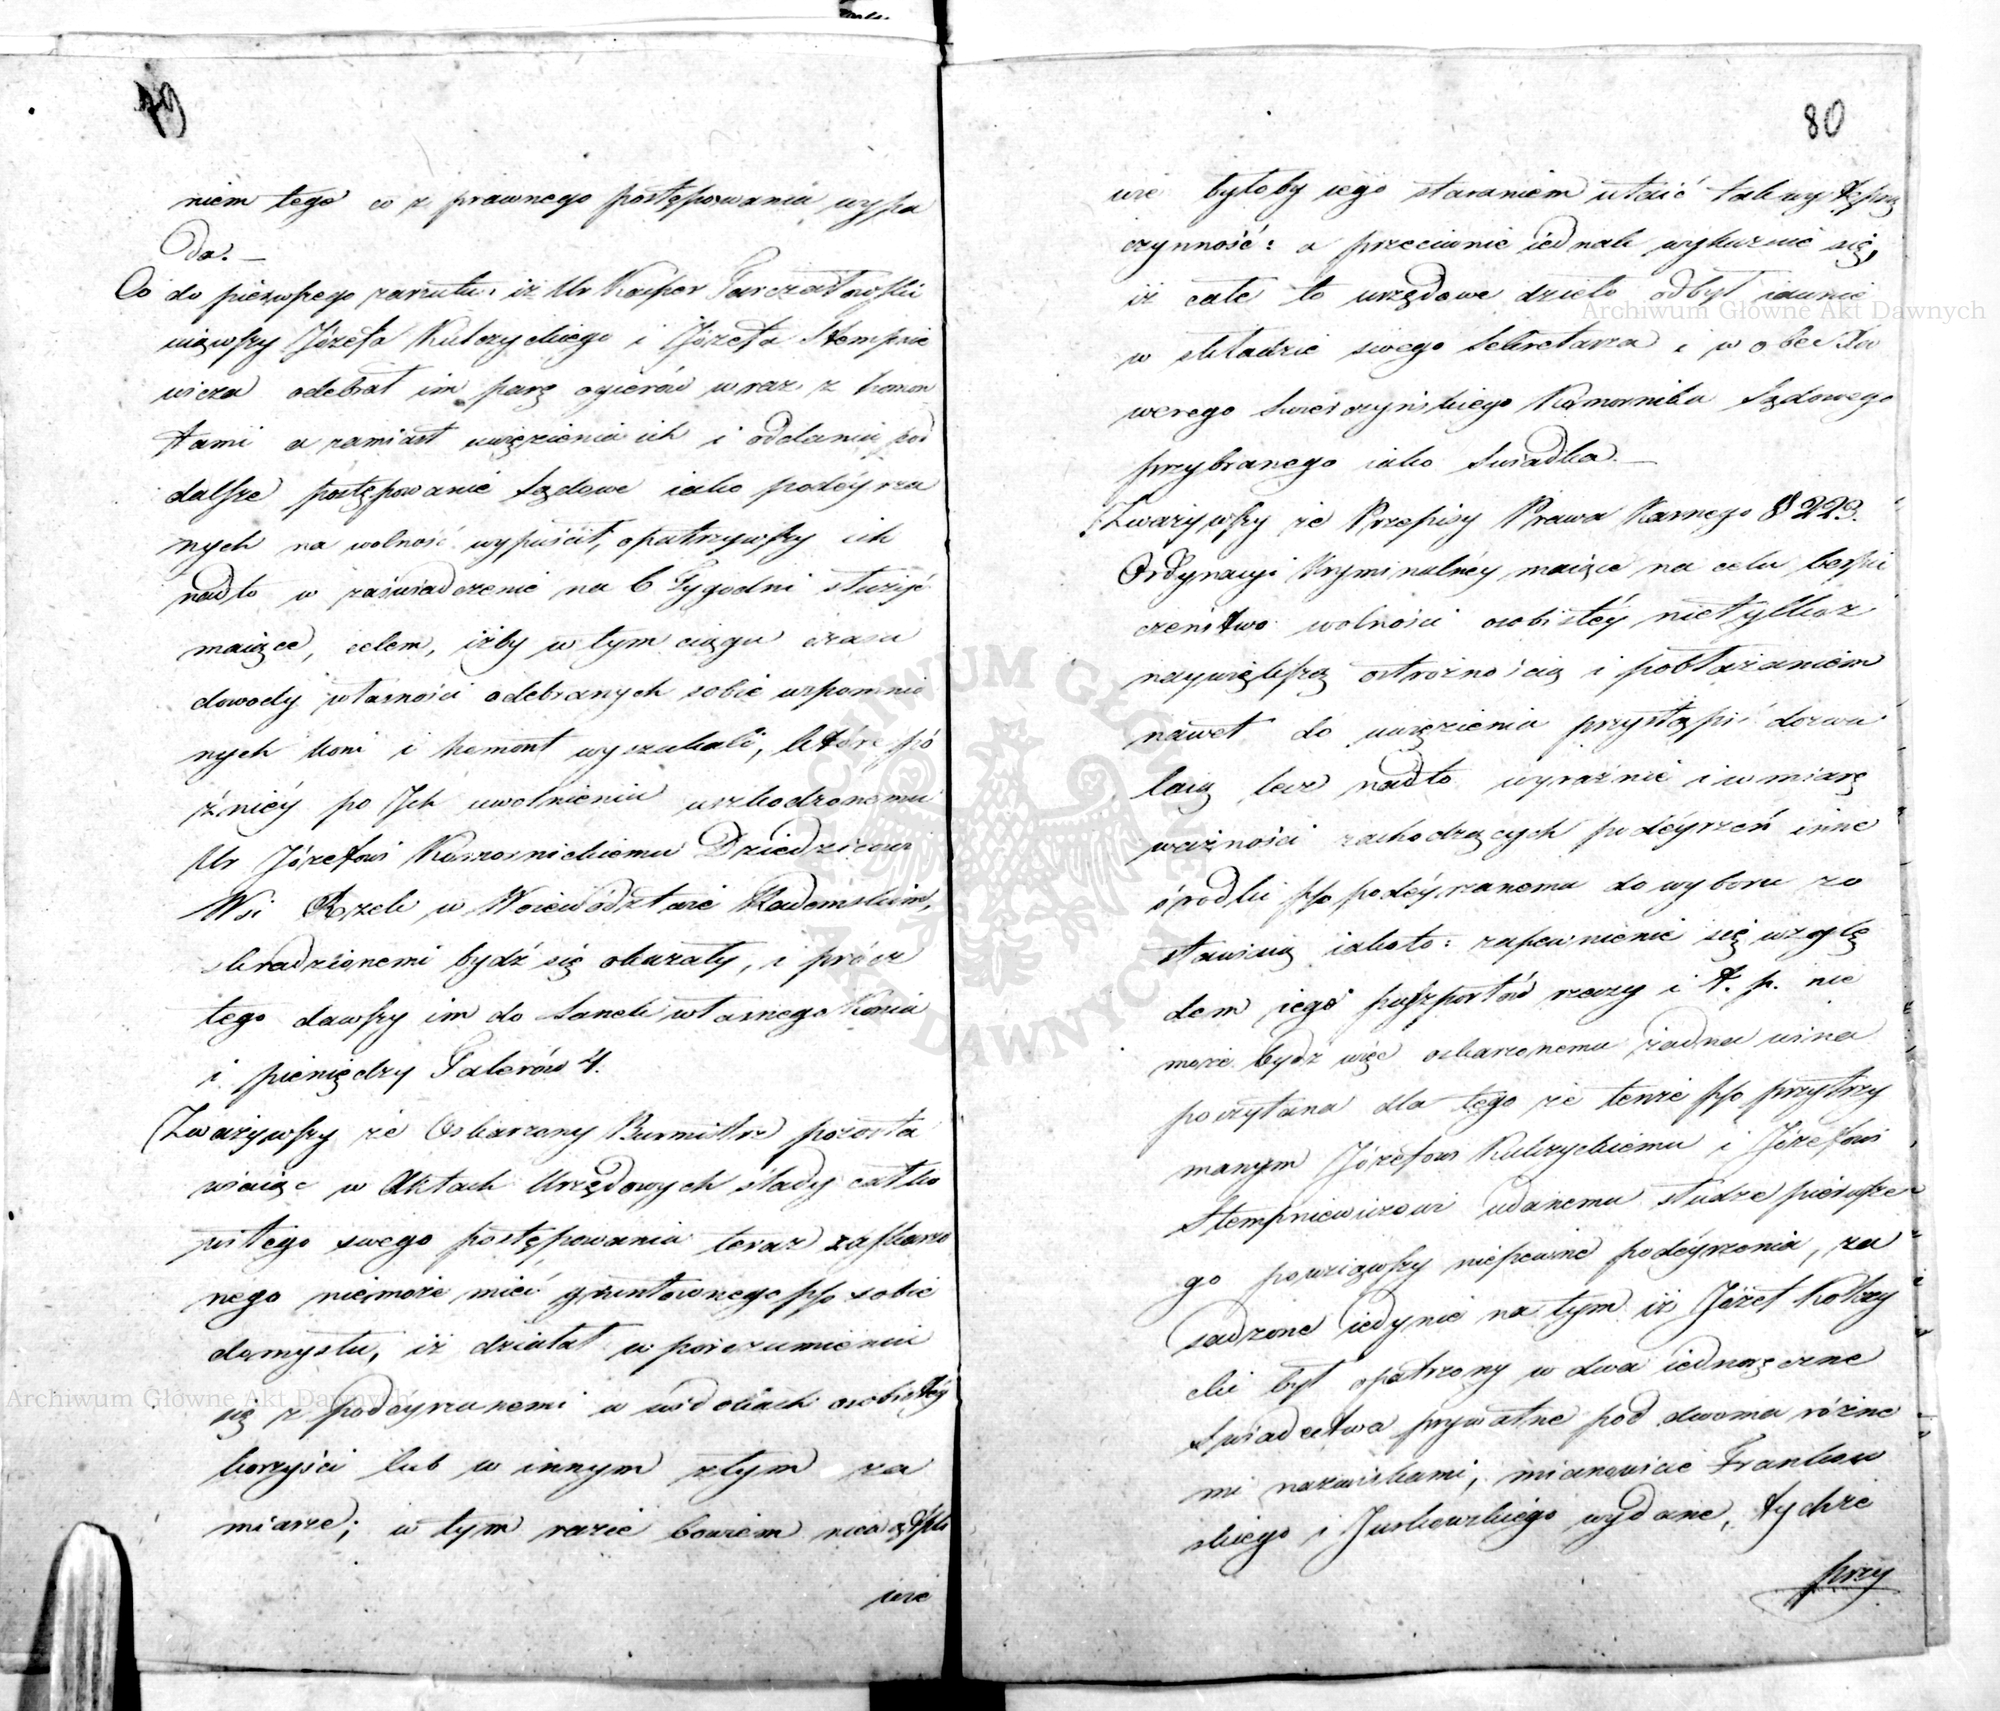 niem tego co z prawnego postępowania wypa
da. —
Co do pierwszego zarzutu iż Ur Kasper Tarczałowski
wziąwszy Józefa Kulczyckiego i Józefa Stempnie
wicza odebrał im parę ogierów wraz z homon
tami a zamiast uwięzienia ich i oddania pod
dalsze postępowanie Sądowe iako podeyrza
nych na wolność wypuścił, opatrzywszy ich
nadto w zaświadczenie na 6 Tygodni służyć
maiące, celem, iżby w tym ciągu czasu
dowody własności odebranych sobie wspomnio
nych koni i homont wyszukali, które pó
źniéy po Ich uwolnieniu uszkodzonemu
Ur Józefowi Dziedzicowi
Wsi Rzek w Woiewództwie Radomskim,
skradzionemi bydź się okazały, i prócz
tego dawszy im do Sanek własnego Konia
i pieniędzy Talerów 4.
Zważywszy że Oskarżony Burmistrz pozosta
wiaiąc w Aktach Urzędowych ślady całko
witego swego postępowania teraz zaskarżo
nego niemoże mieć gruntownego pko sobie
domysłu, iż działał w porozumieniu
się z podeyrzanemi w widokach osobistéy
korzyści lub w innym złym za
miarze; w tym razie bowiem
wie
80
wie byłoby iego staraniem utaić takowy
czynność: a przeciwnie iednak wykazuie się,
iż całe to urzędowe dzieło odbył iawnie
w składzie swego Sekretarza i w obec Xa
werego Swierczyńskiego Komornika Sądowego
przybranego iako Swiadka. —
Zważywszy że Przepisy Prawa Karnego § 223.
Ordynacyi Kryminalnéy maiące na celu beśpie
czeństwo wolności osobistéy nietylko z
naywiększą ostrożnością i pobłażaniem
nawet do uwięzienia przystąpić dozwa
laią lecz nadto wyraźnie i w miarę
ważności zachodzących podéyrzeń inne
środki pko podéyrzanemu do wyboru zo
stawiaią iakoto: zapewnienie się wzglę
dem iego paszportów rzeczy i t. p. nie
może bydź więc oskarżonemu żadna wina
poczytana dla tego że tenże pko przytrzy
manym Józefowi Kulczyckiemu i Józefowi
Stempniewiczowi udanemu słudze pierwsze
go powziąwszy niepewne podéyrzenia, za
sadzone iedynie na tym iż Józef Kolczy
cki był opatrzony w dwa iednoręczne
Swiadectwa prywatne pod dwoma różne
mi nazwiskami, mianowicie Frankow
skiego i Juskowskiego wydane, tychże
przy
Archiwum Główne Akt Dawnych
Archiwum Główne Akt Dawnych
ARCHIWUM GŁÓWNE AKT DAWNYCH